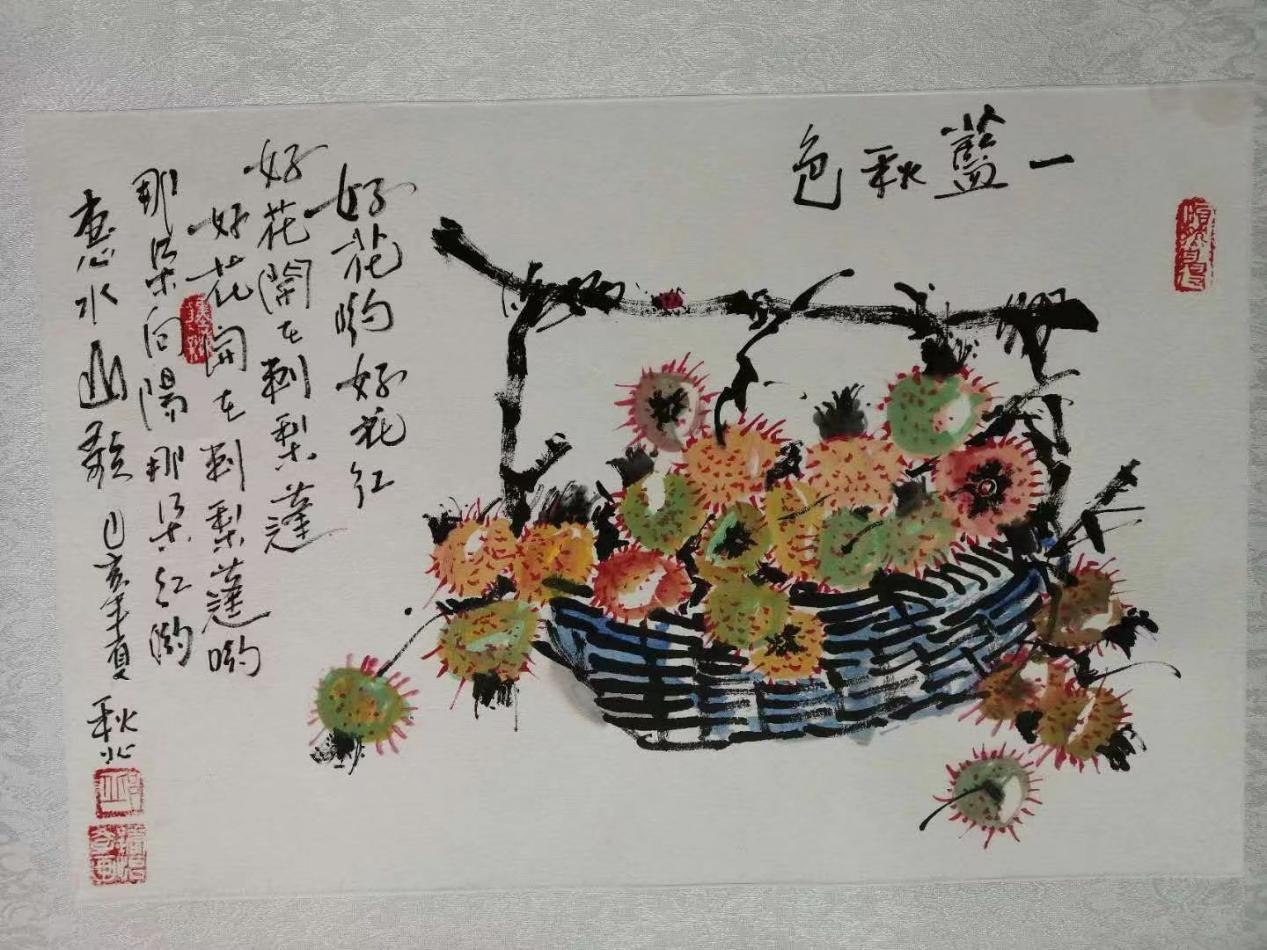 一藍秋色
好花哟好花红
好花開在刺梨蓬
好花開在刺梨蓬哟
那朵向陽那朵红哟
惠水山歌 己亥年夏 秋